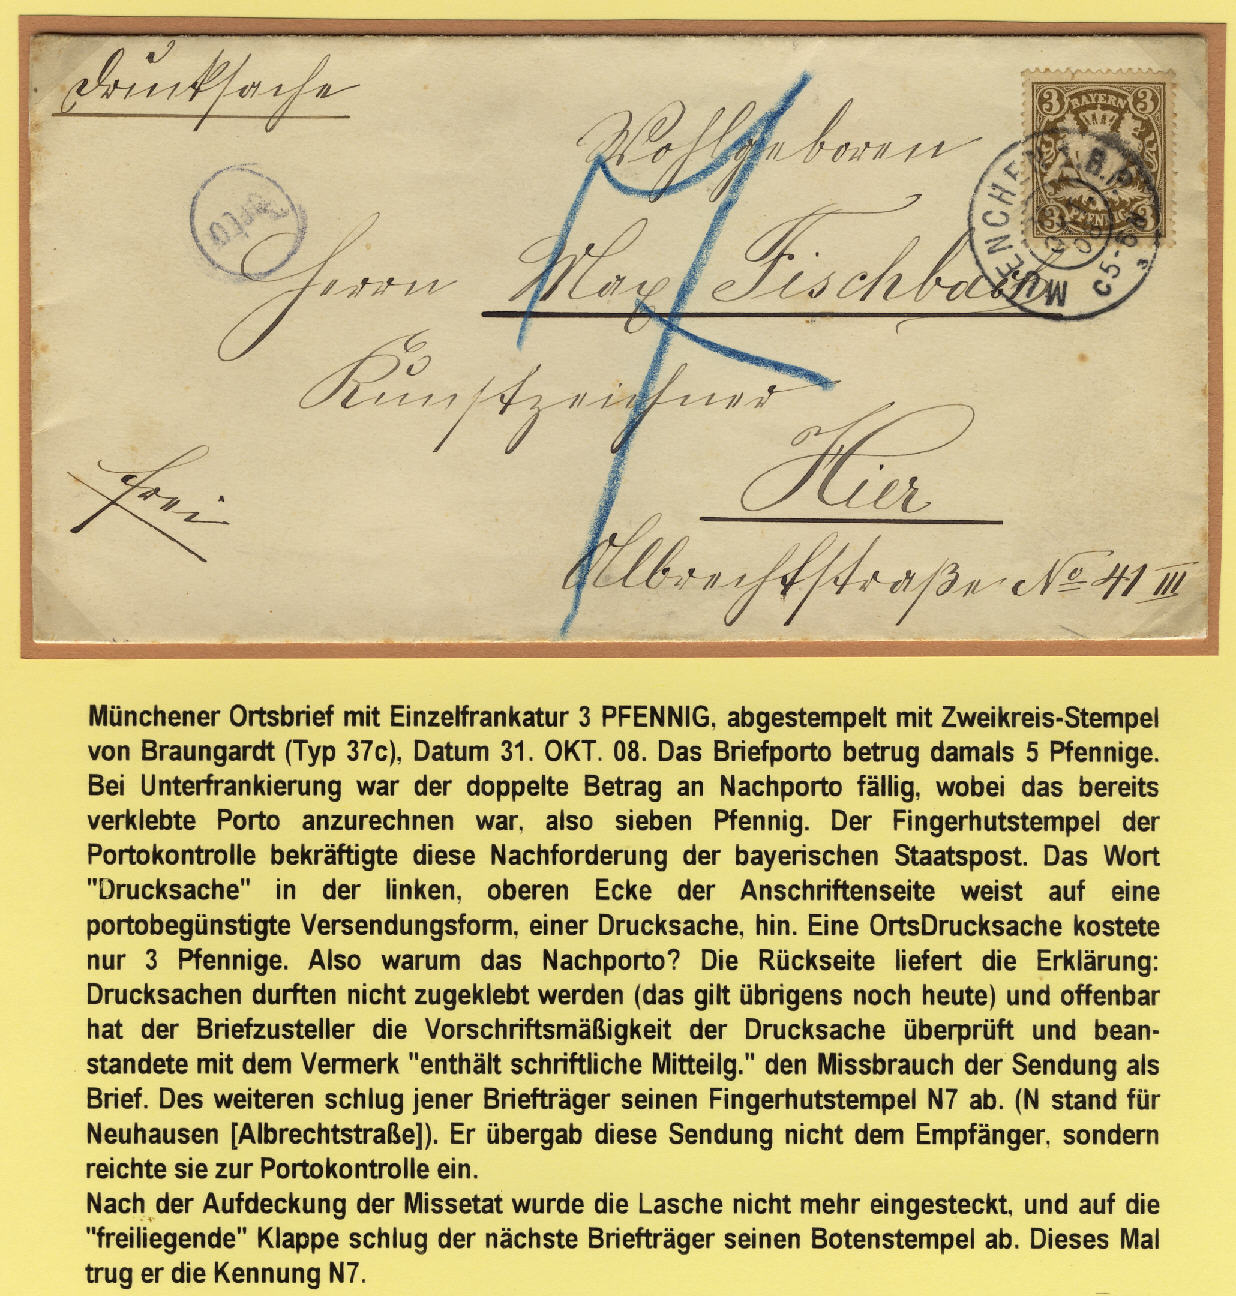 Drucksache
3 BAYERN 3
3 PFENNIG 3
MUENCHEN I.B.P.
5-6
Porto
7
Wohlgeboren
Herrn Max Fischbach
Kunstzeichner
Hier
Frei
Albrechtstraße No 41 III
Münchener Ortsbrief mit Einzelfrankatur 3 PFENNIG, abgestempelt mit Zweikreis-Stempel
von Braungardt (Typ 37c), Datum 31. OKT. 08. Das Briefporto betrug damals 5 Pfennige.
Bei Unterfrankierung war der doppelte Betrag an Nachporto fällig, wobei das bereits
verklebte Porto anzurechnen war, also sieben Pfennig. Der Fingerhutstempel der
Portokontrolle bekräftigte diese Nachforderung der bayerischen Staatspost. Das Wort
"Drucksache" in der linken, oberen Ecke der Anschriftenseite weist auf eine
portobegünstigte Versendungsform, einer Drucksache, hin. Eine OrtsDrucksache kostete
nur 3 Pfennige. Also warum das Nachporto? Die Rückseite liefert die Erklärung:
Drucksachen durften nicht zugeklebt werden (das gilt übrigens noch heute) und offenbar
hat der Briefzusteller die Vorschriftsmäßigkeit der Drucksache überprüft und bean-
standete mit dem Vermerk "enthält schriftliche Mitteilg." den Missbrauch der Sendung als
Brief. Des weiteren schlug jener Briefträger seinen Fingerhutstempel N7 ab. (N stand für
Neuhausen [Albrechtstraße]). Er übergab diese Sendung nicht dem Empfänger, sondern
reichte sie zur Portokontrolle ein.
Nach der Aufdeckung der Missetat wurde die Lasche nicht mehr eingesteckt, und auf die
"freiliegende" Klappe schlug der nächste Briefträger seinen Botenstempel ab. Dieses Mal
trug er die Kennung N7.